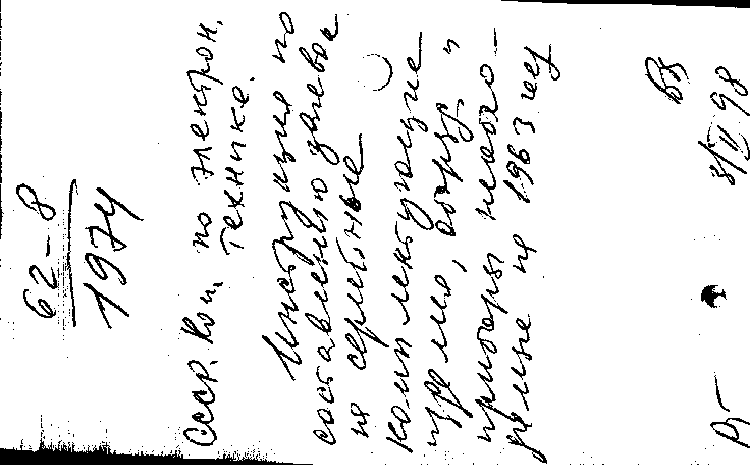 62-8
1974
СССР. Ком. по электрон.
технике.
Инструкция по
составлению заявок
на серийные
комплектующие
изделия, оборуд. и
приборы необхо-
димые на 1963 год